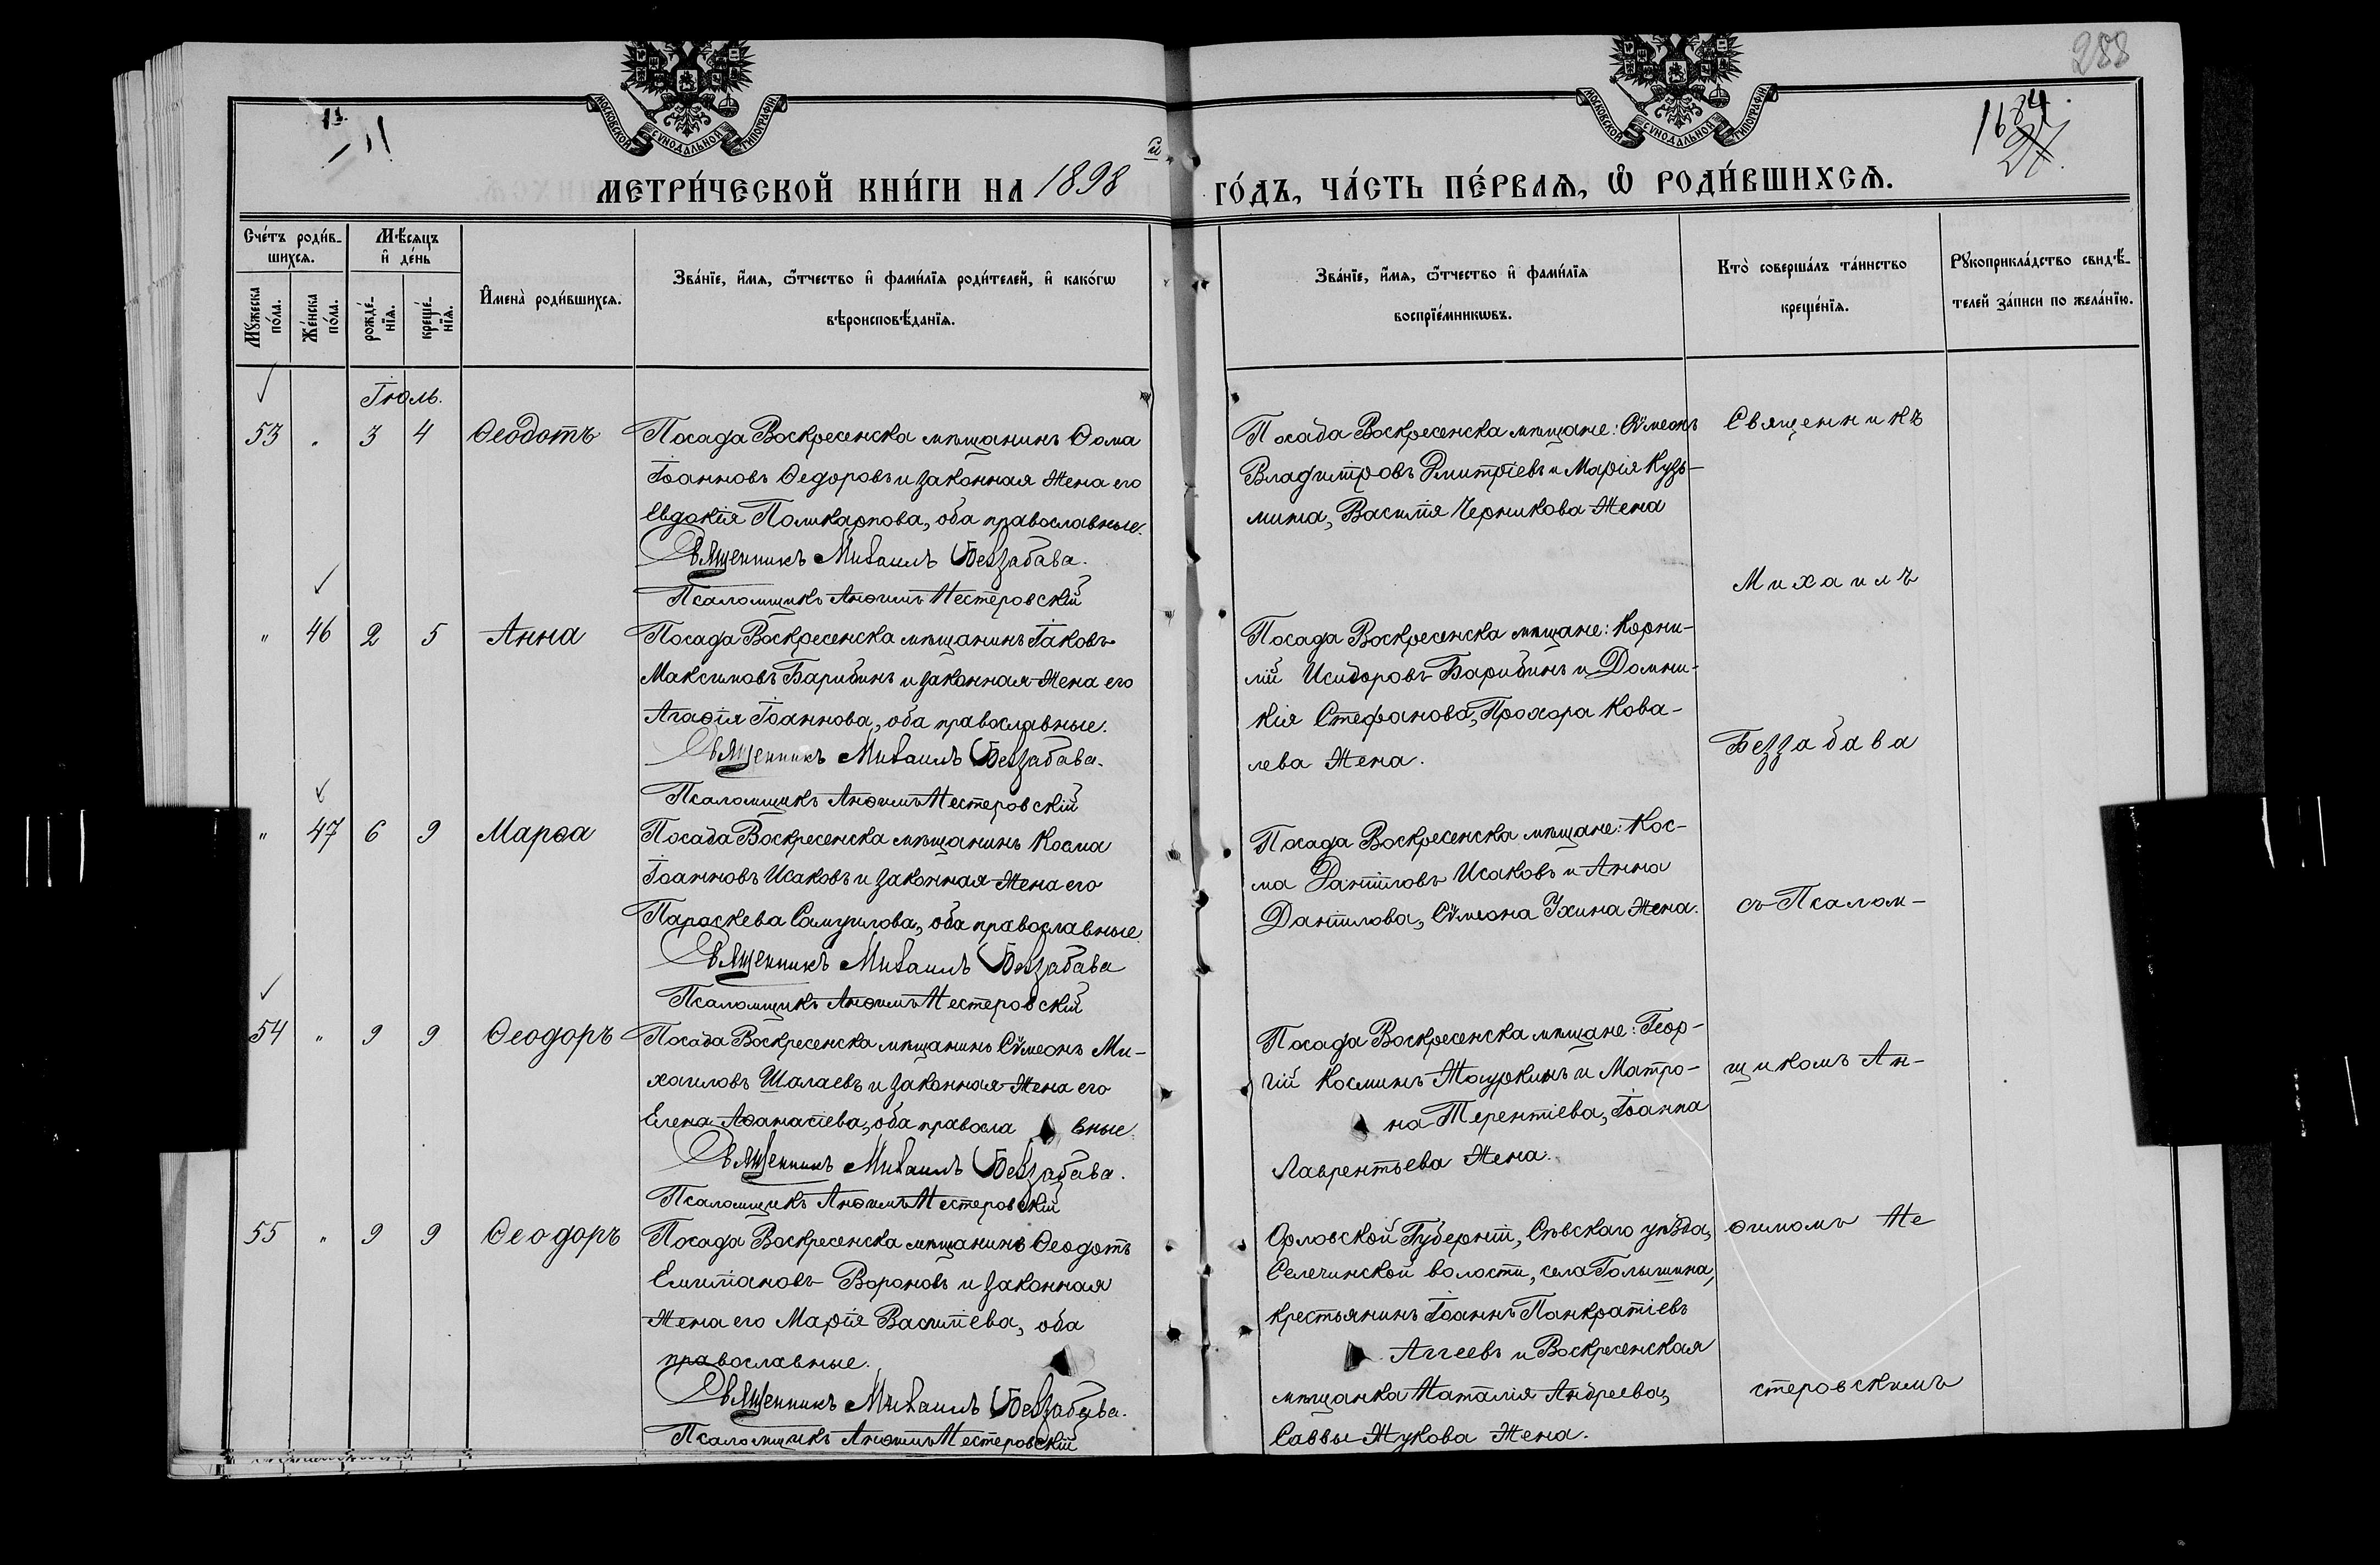 288
11
МОСКОВСКОЙ СѴНОДАЛЬНОЙ ТИПОГРАФІИ
МОСКОВСКОЙ СѴНОДАЛЬНОЙ ТИПОГРАФІИ
МЕТРИ́ЧЕСКОЙ КНИ́ГИ НА 1898 й ГО́ДЪ, ЧА́СТЬ ПЕ́РВАѦ, Ѽ РОДИ́ВШИХСѦ.
Сче́тъ роди́в-
шихсѧ.
Мꙋжеска по́ла.
Же́нска по́ла.
Мѣ́сѧцъ
и҆ де́нь
рожде́-
нїѧ.
креще́-
нїѧ.
И҆мена̀ роди́вшихсѧ.
Зва́нїе, и҆́мѧ, ѻ҆́тчество и҆ фами́лїѧ роди́телей, и҆ како́гѡ
вѣроисповѣ́данїѧ.
Зва́нїе, и҆́мѧ, ѻ҆́тчество и҆ фами́лїѧ
воспрїе́мникѡвъ.
Кто̀ соверша́лъ та́инство
креще́нїѧ.
Рꙋкоприкла́дство свидѣ́-
телей за́писи по жела́нїю.
Іюль.
53 " 3 4 Ѳеодотъ
Посада Воскресенска мѣщанинъ Ѳома
Іоанновъ Ѳедоровъ и законная жена его
Евдокія Поликарпова, оба православные.
Священникъ Михаилъ Беззабава.
Псаломщикъ Анѳимъ Нестеровскій
Посада Воскресенска мѣщане: Сѵмеонъ
Владиміровъ Дмитріевъ и Марія Кузь-
мина, Василія Черникова жена
" 46 2 5 Анна
Посада Воскресенска мѣщанинъ Іаковъ
Максимовъ Барибинъ и законная жена его
Агаѳія Іоаннова, оба православные.
Священникъ Михаилъ Беззабава.
Псаломщикъ Анѳимъ Нестеровскій
Посада Воскресенска мѣщане: Корни-
лій Исидоровъ Барибинъ и Домни-
кія Стефанова, Прохора Кова-
лева жена.
" 47 6 9 Марѳа
Посада Воскресенска мѣщанинъ Косма
Іоанновъ Исаковъ и законная жена его
Параскева Самуилова, оба православные.
Священникъ Михаилъ Беззабава
Псаломщикъ Анѳимъ Нестеровскій
Посада Воскресенска мѣщане: Кос-
ма Даніиловъ Исаковъ и Анна
Даніилова, Сѵмеона Ухина жена.
54 " 9 9 Ѳеодоръ
Посада Воскресенска мѣщанинъ Сѵмеонъ Ми-
хаиловъ Шалаевъ и законная жена его
Елена Аѳанасіева, оба правосла вные.
Священникъ Михаилъ Беззабава.
Псаломщикъ Анѳимъ Нестеровскій
Посада Воскресенска мѣщане: Геор-
гій Косминъ и Матро-
на Терентіева, Іоанна
Лаврентьева жена.
55 " 9 9 Ѳеодоръ
Посада Воскресенска мѣщанинъ Ѳеодотъ
Емиліановъ Вороновъ и законная
жена его Марія Василіева, оба
православные.
Священникъ Михаилъ Беззабава.
Псаломщикъ Анѳимъ Нестеровскій
Орловской Губерніи, Сѣвскаго уѣзда,
Селечинской волости, села Голышина,
крестьянинъ Іоаннъ Панкратіевъ
Аггеевъ и Воскресенская
мѣщанка Наталія Андреева,
Саввы Жукова жена.
Священникъ
Михаилъ
Беззабава
съ Псалом-
щикомъ Ан-
ѳимомъ Не
стеровскимъ